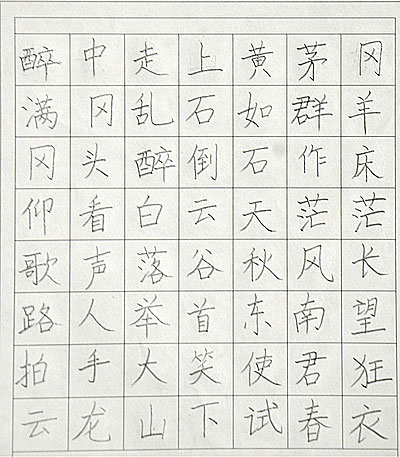 醉中走上黄茅冈
满冈乱石如群羊
冈头醉倒石作床
仰看白云天茫茫
歌声落谷秋风长
路人举首东南望
拍手大笑使君狂
云龙山下试春衣